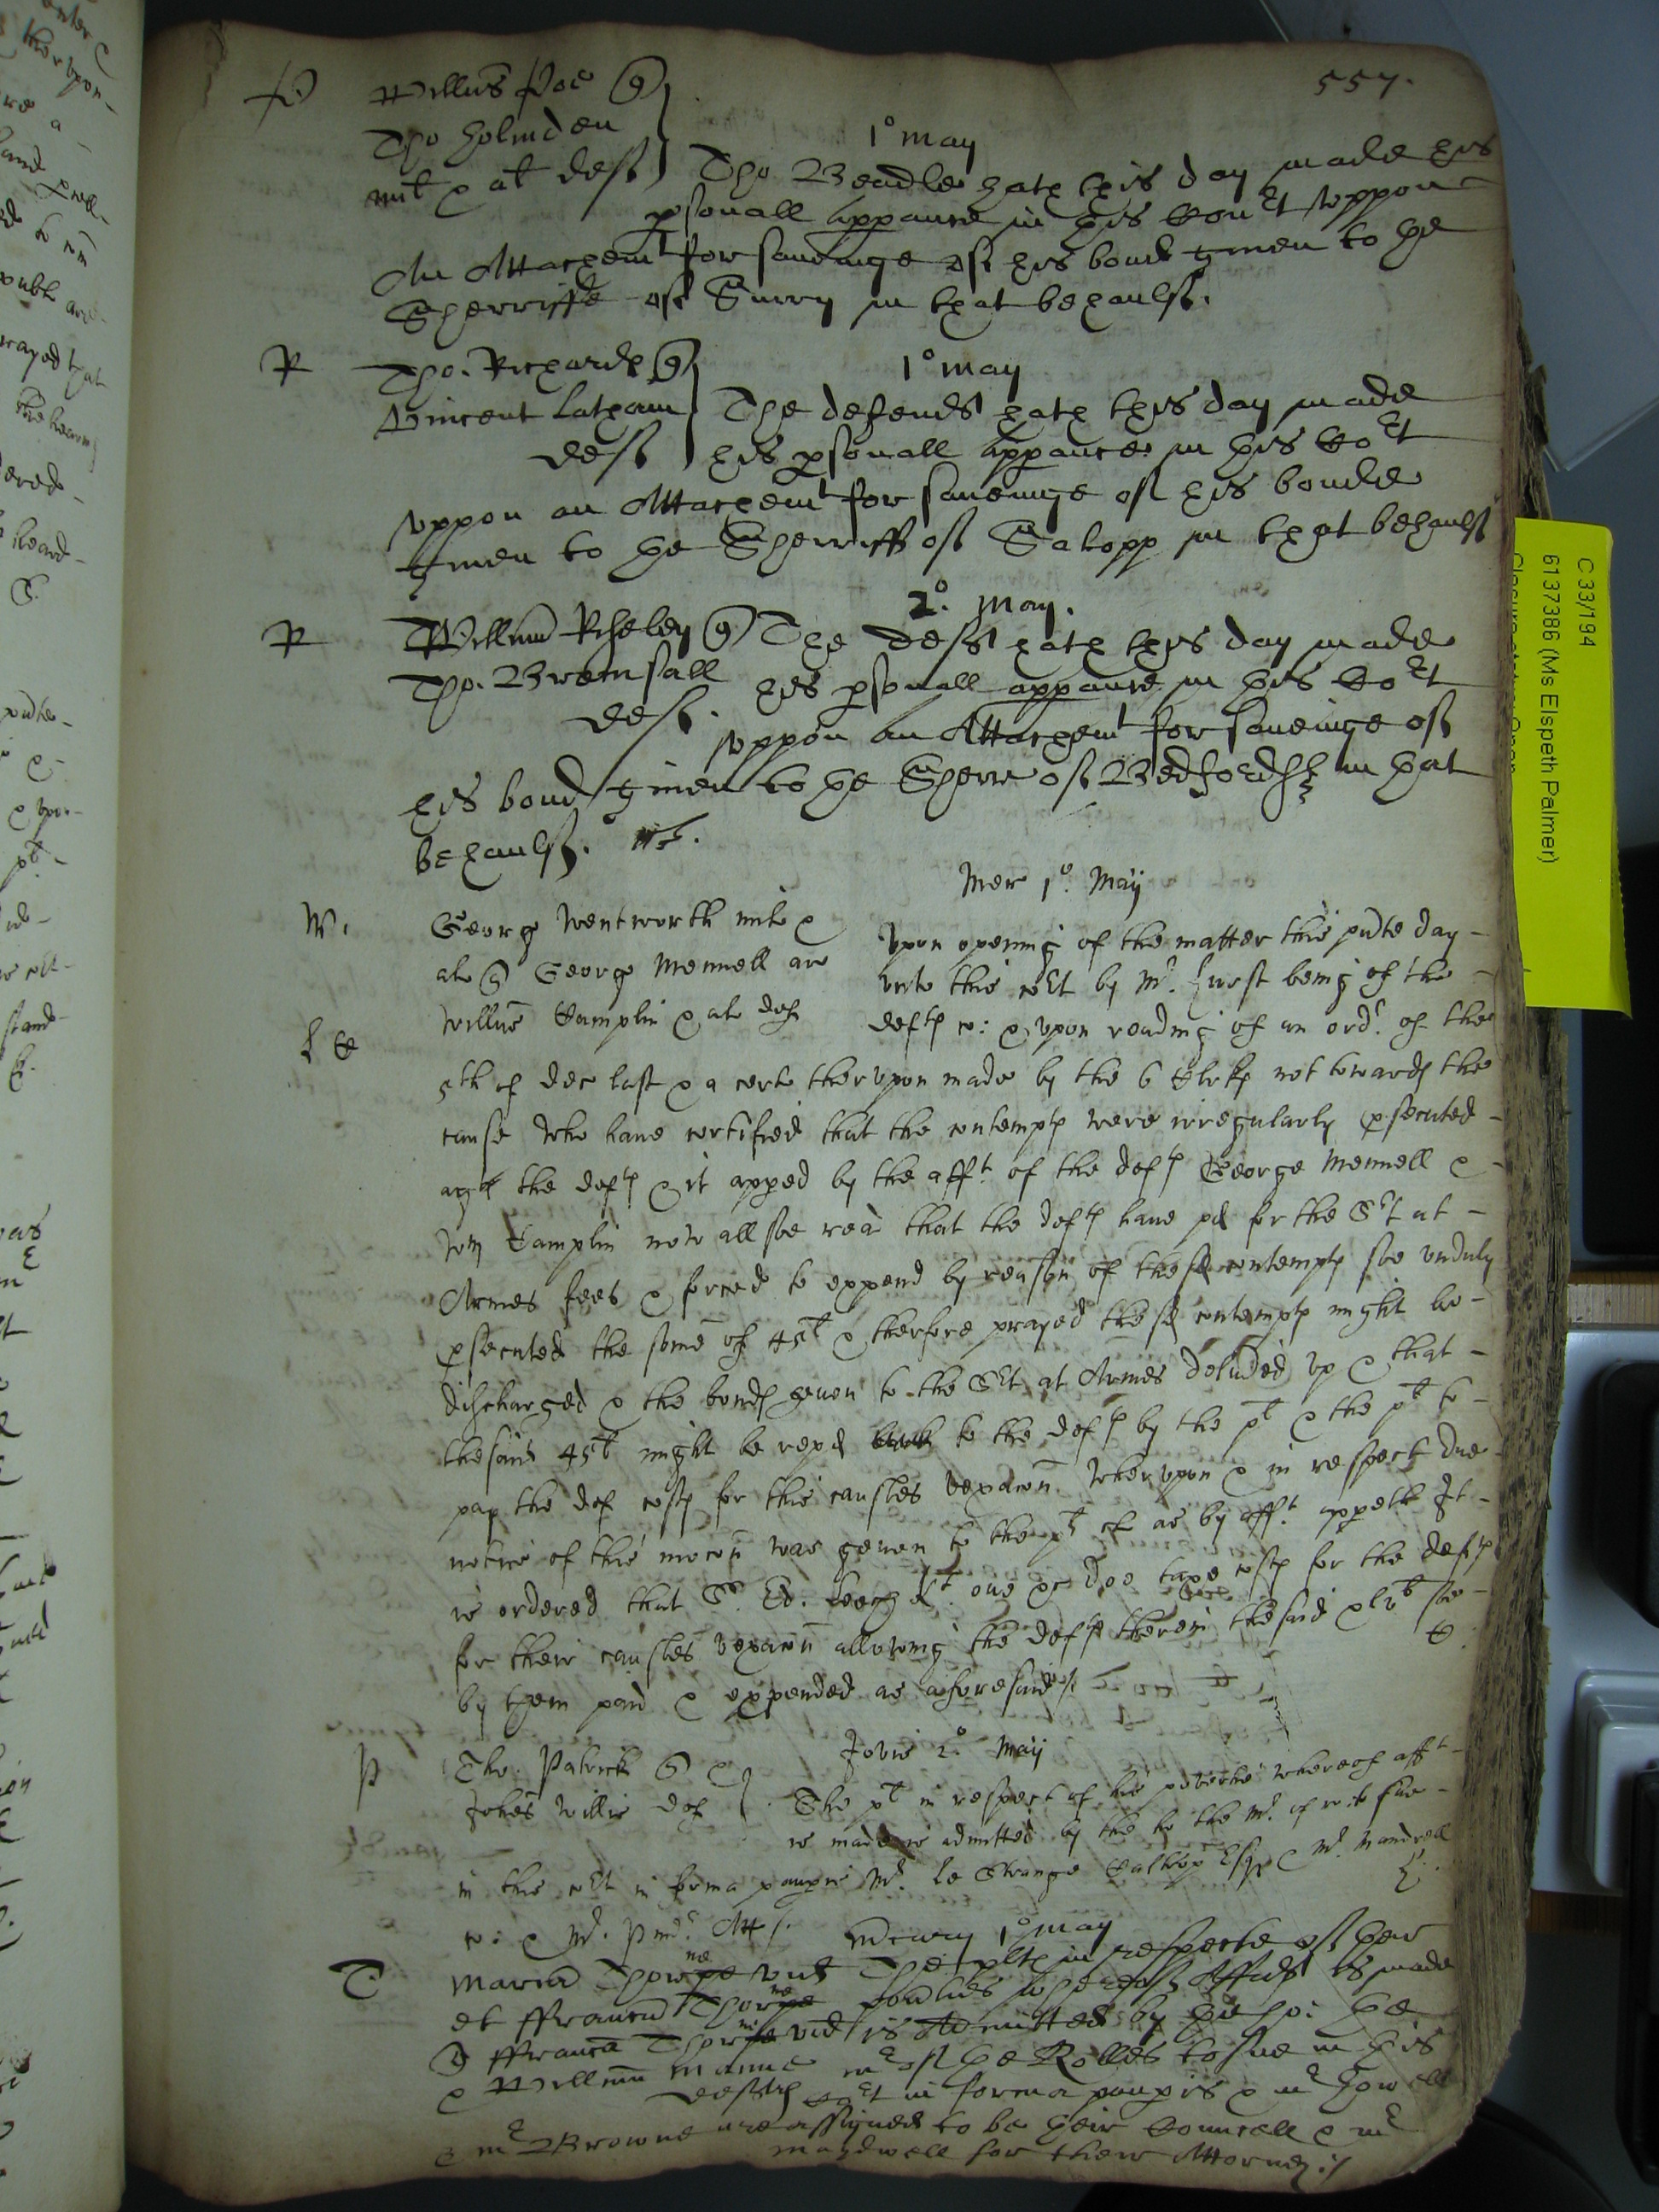 557.
Willus Poe
Tho holmden
mil & al def
1° may
Tho Beadle hath this day made his
psonall appance in this Court uppon
An Attachemt for saveinge of his bond given to the
Sherriffe of Surry in that behaulf.
R
Tho. Richards
Vincent Latham
def
1° may
The defendt hath this day made
his psonall appance in this Cort
uppon an Attachemt for saveinge of his bonde
given to the Sherriff of Salopp in that behaulf
2°. May.
R
Thō. Bromsall
def.
The deft hath this day made
his psonall appance in this Cort
uppon an Attachemt for saveinge of
his bond given to the Sherr of Bedfordsh in that
behaulf.
Mer 1°. Maij
W.
George Wentworth mil &
al George Mennell ar
Willus Tamplin & al def
Upon opening of the matter this pnte day
unto this Cort by Mr. Hurst being of the
defts co: & upon reading of an ordr. of the
5th of Dec last & a certe therupon made by the 6 Clrks not towards the
cause who have certified that the contempts were irregularly psecuted
agt the defts & it apped by the afft. of the defts George Mennell &
Wm Tamplin now allsoe read that the defts have pd for the Srt at
Armes fees & forced to expend by reason of these contempts soe unduly
psecuted the some of 45l & therfore prayed these contempts might be
discharged & the bonds geven to the Srt at Armes delivred up & that
the said 45l might be repd to the defts by the pl & the pl to
pay the def costs for this causles vexacon. Wherupon & in respect due
notice of this mocon was geven to the pl as by afft. appeth It
is ordered that Sr. Ed. doe taxe costs for the defts
for their causles vexacon allowing the defts therein the said xlvl soe
by them paid & expended as aforesaid
P
Tho: Patrick
Johes Willis def
Jovis 2° Maij
The pl in respect of his povertie whereof afft
is made is admitted by the the Mr. of to sue
in this Cort in forma paupis Mr. le Strange Calthrop Esq & Mr.
co: & Mr. Att
Mercury 1° may
T
Maria Thorne vid
et ffrancis Thorne
ffrancis Thorne vid
& Willim Manne
defts
The plts in respecte of their
whereof Affidt is made
is Admitted by the ho: the
mr of the Rolles to sue in this
Cort in forma paupis & mr Howell
& mr Browne are assigned to be their Councell & mr
Maydwell for their Attorney
C 33/194
6137386 (Ms Elspeth Palmer)